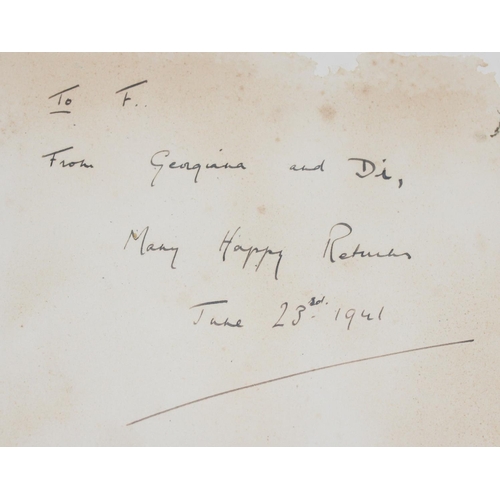 To F.
From Georgiana and Di,
Many Happy Returns
June 23rd. 1941